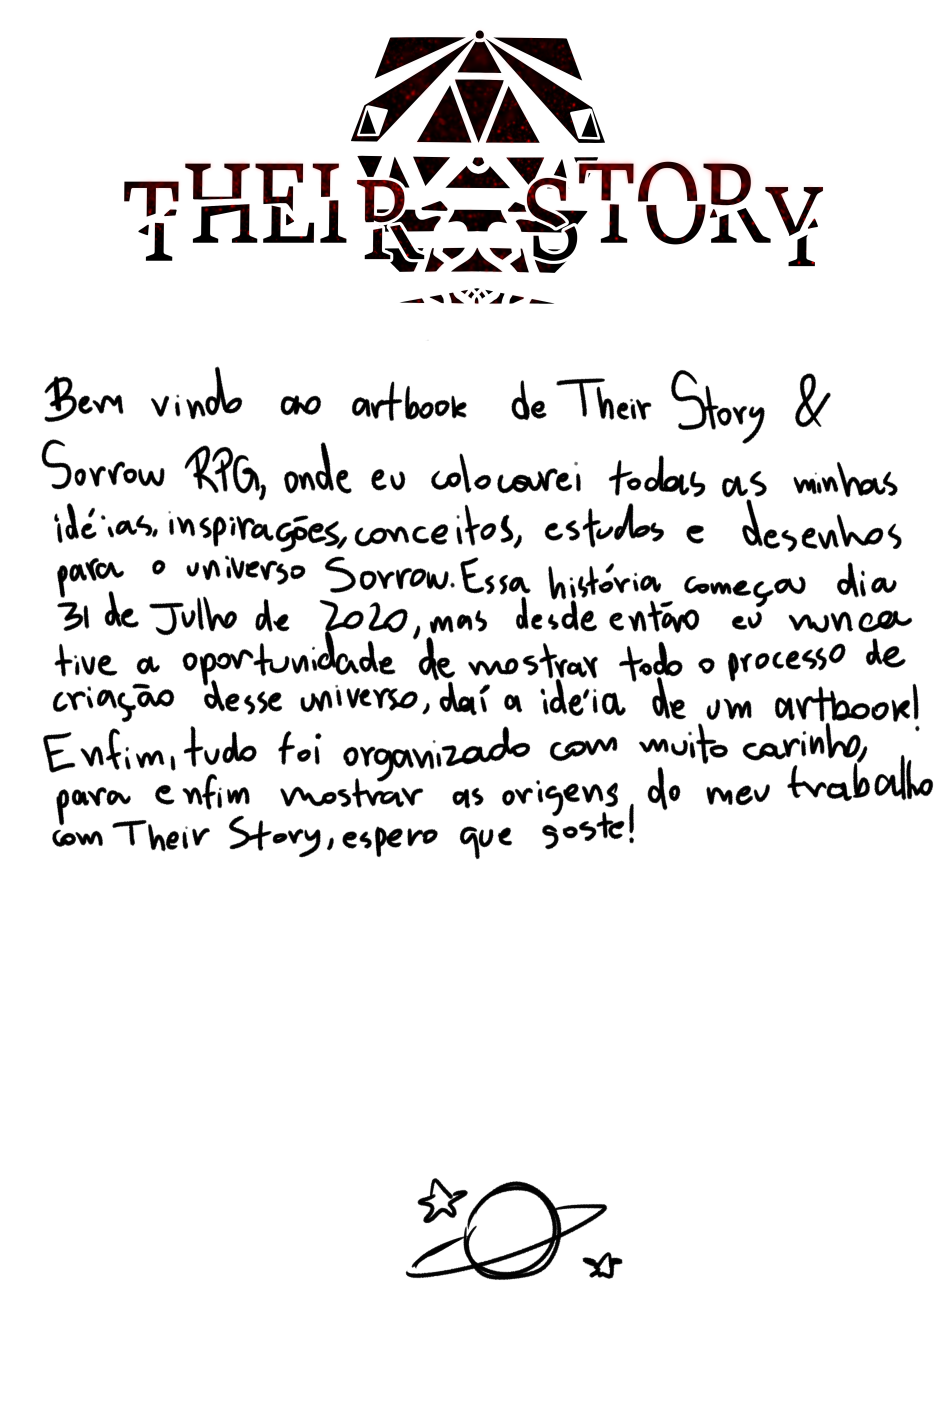 THEIR STORY
Bem vindo ao artbook de Their Story &
Sorrow RPG, onde eu colocarei todas as minhas
idéias, inspirações, conceitos, estudos e desenhos
para o universo Sorrow. Essa história começou dia
31 de Julho de 2020, mas desde então eu nunca
tive a oportunidade de mostrar todo o processo de
criação desse universo, daí a idéia de um artbook!
Enfim, tudo foi organizado com muito carinho,
para enfim mostrar as origens do meu trabalho
com Their Story, espero que goste!